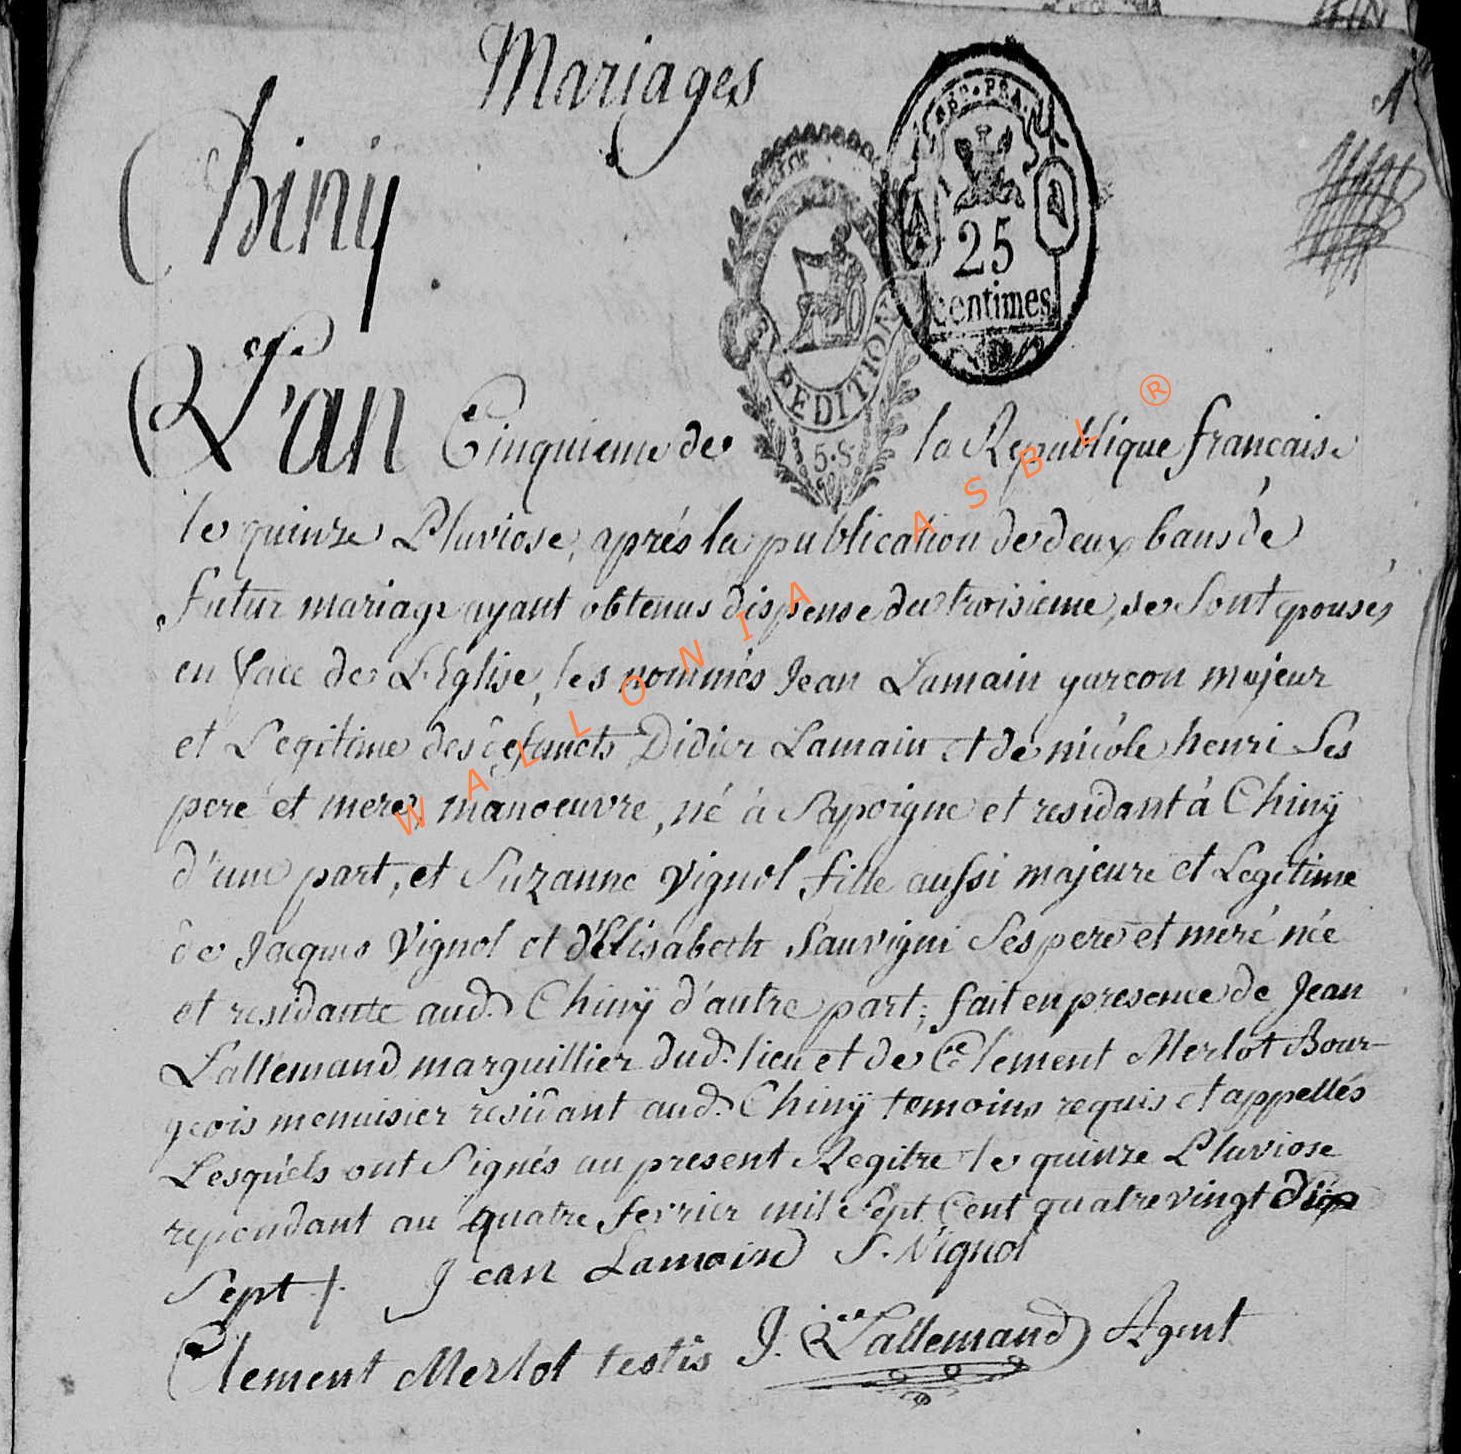 Mariages
1
Chiny
REP. FRA.
25
centimes
EXPEDITION
5.S
L'an Cinquieme de la Republique francaise
le quinze Pluviose, aprés la publication de deux bans de
futur mariage ayant obtenus dispense du troisieme, se sont epousés
en face de L'Eglise, les nommés Jean Lamain garcon majeur
et Legitime des defuncts Didier Lamain et de nicole henri Ses
pere et mere, manoeuvre, né à Sapoigne et residant à Chinÿ
d'une part, et Suzanne Vignol fille aussi majeure et Legitime
de Jacques Vignol et d'Elisabeth Sauvigni Ses pere et mere née
et residante aud. Chinÿ d'autre part; fait en presence de Jean
Lallemand marguillier dud. lieu et de Clement Merlot Bour-
geois menuisier residant aud. Chinÿ temoins requis et appellés
Lesquels ont Signés au present Regitre le quinze Pluviose
rependant au quatre fevrier mil Sept Cent quatre vingt dix
Sept /. Jean Lamain S. Vignol
Clement Merlot testis J. Lallemand Agent
WALLONIA ASBL ®